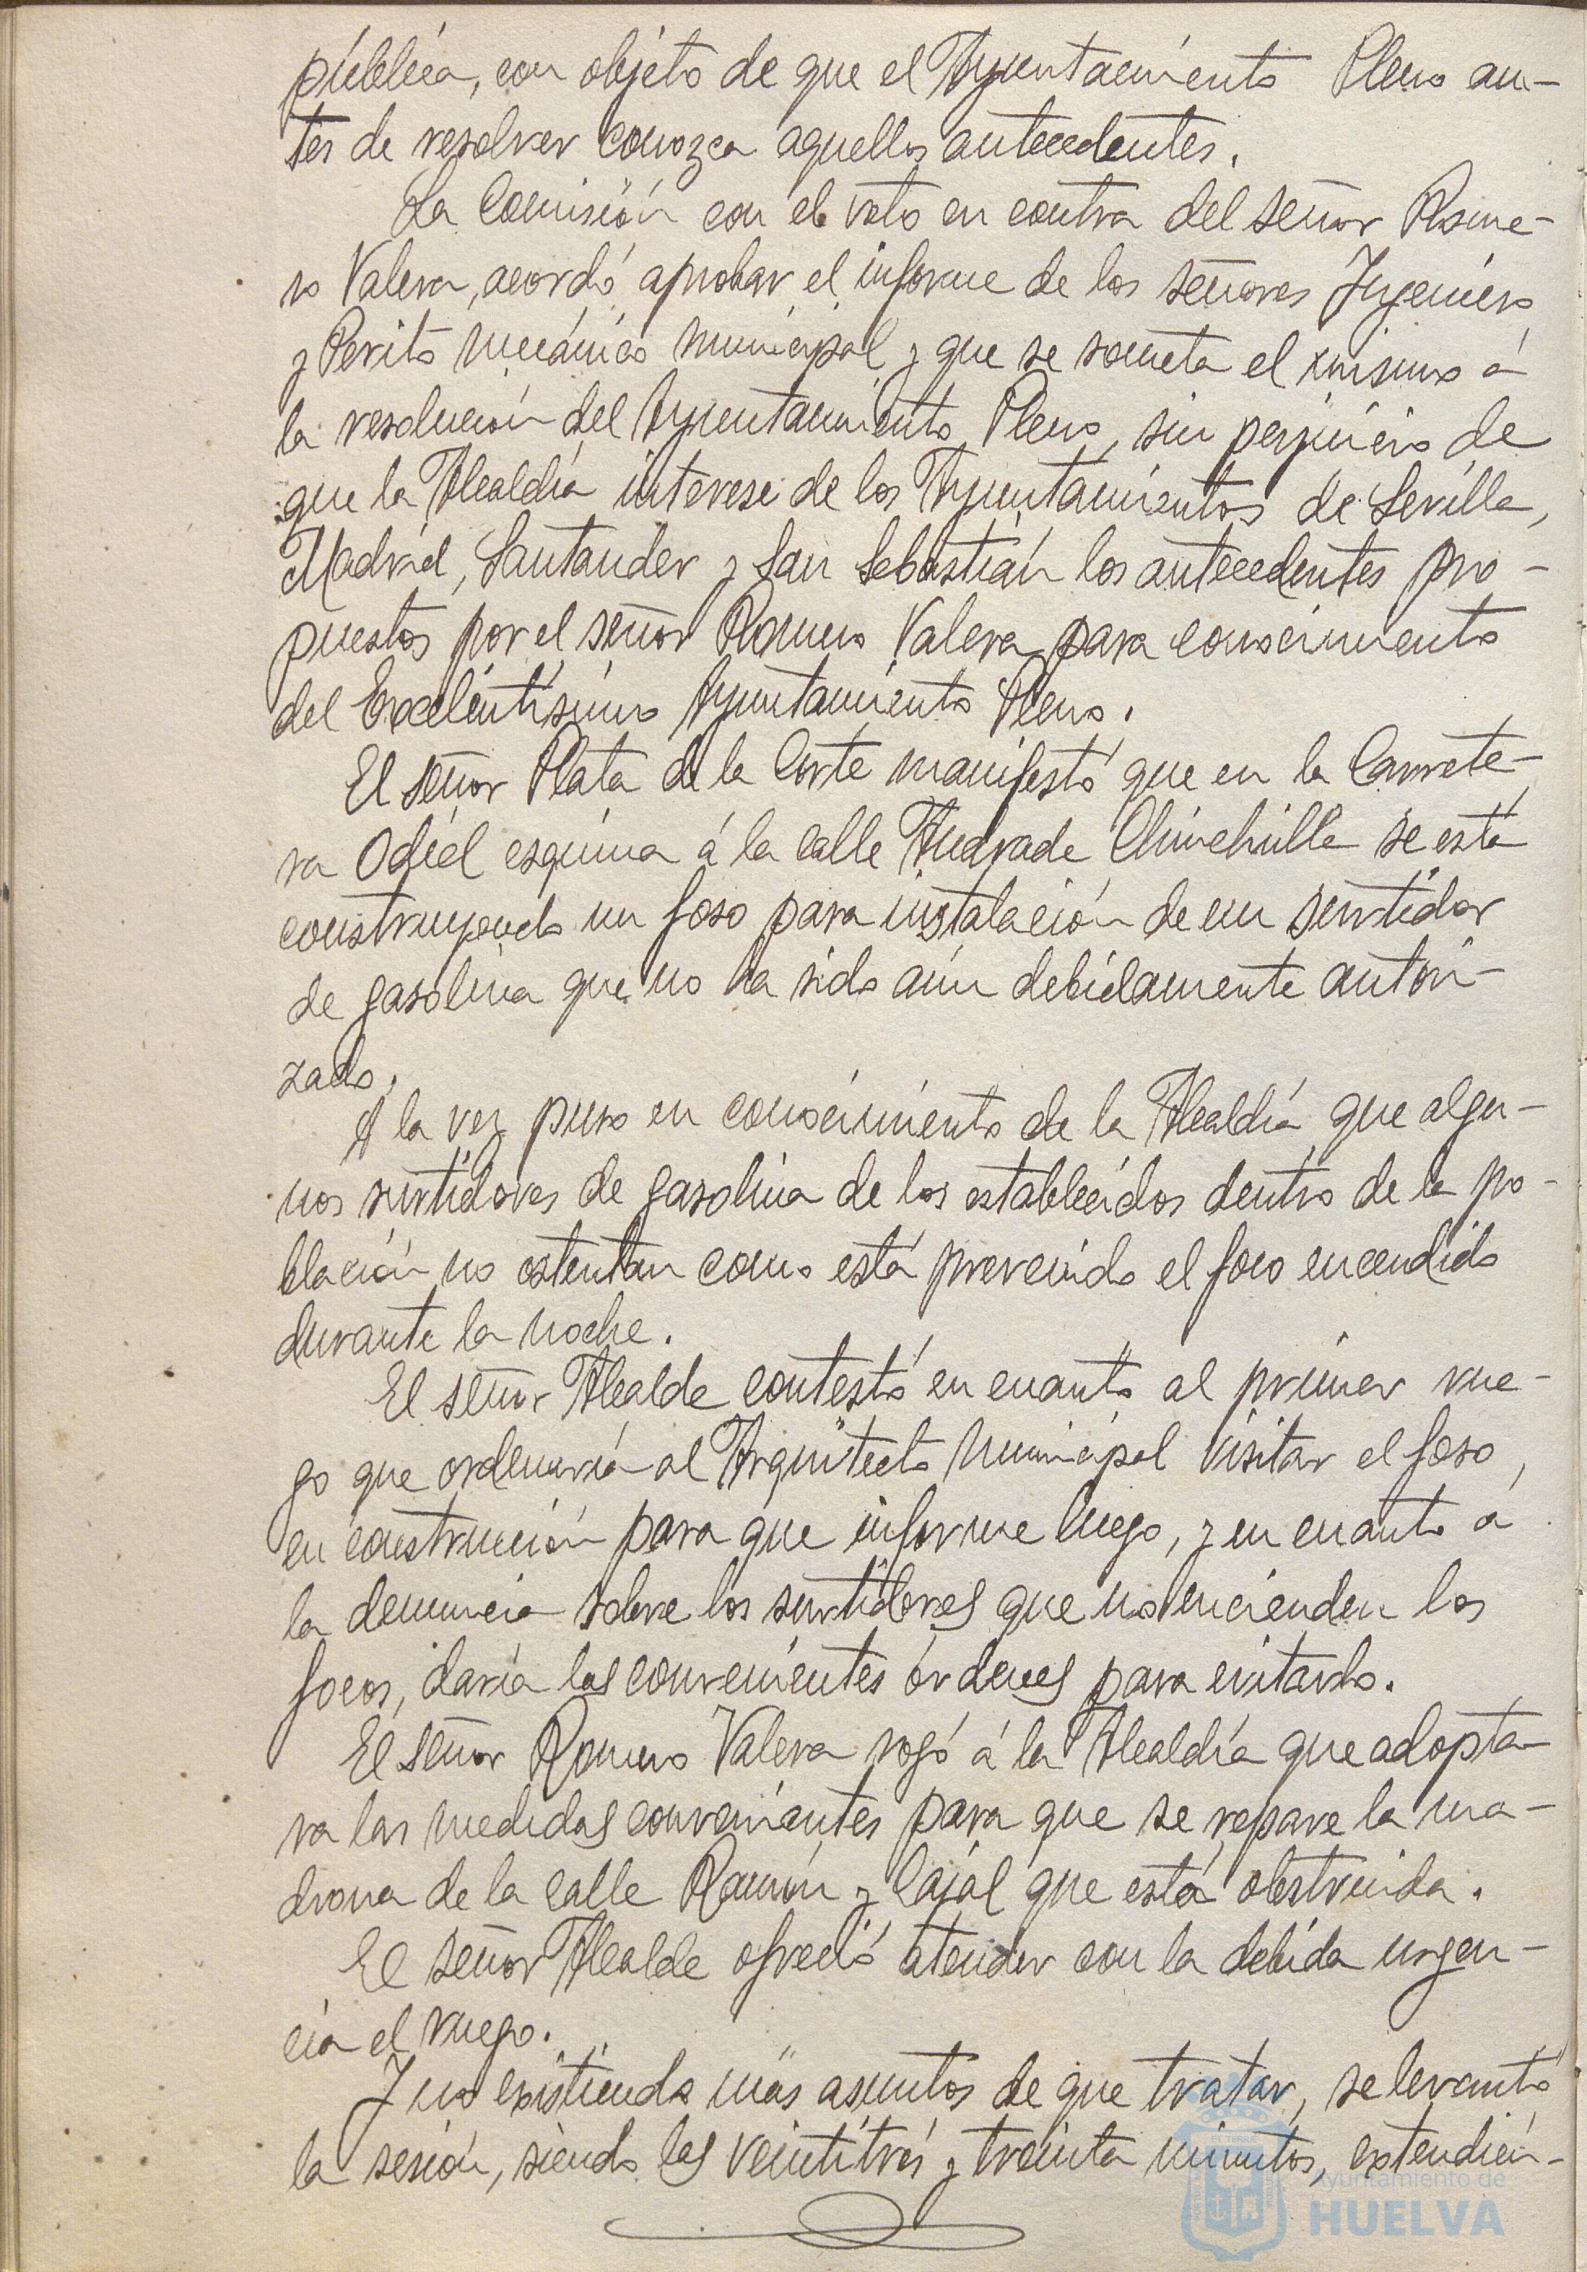 pública, con objeto de que el Ayuntamiento Pleno an-
tes de resolver conozca aquellos antecedentes.
La Comisión con el voto en contra del señor Rome-
ro Valera, acordó aprobar el informe de los señores Ingeniero
y Perito mecánico municipal y que se someta el mismo á
la resolución del Ayuntamiento Pleno, sin perjuicio de
que la Alcaldía interese de los Ayuntamientos de Sevilla,
Madrid, Santander y San Sebastián los antecedentes pro-
puestos por el señor Romero Valera para conocimiento
del Excelentísimo Ayuntamiento Pleno.
El señor Plata de la Corte manifestó que en la Carrete-
ra Odiel esquina á la calle Andrade Chinchilla se está
construyendo un foso para instalación de un surtidor
de gasolina que no ha sido aún debidamente autori-
zado.
A la vez puso en conocimiento de la Alcaldía que algu-
nos surtidores de gasolina de los establecidos dentro de la po-
blación no ostentan como está prevenido el foco encendido
durante la noche.
El señor Alcalde contestó en cuanto al primer rue-
go que ordenaría al Arquitecto Municipal visitar el foso,
en construcción para que informe luego, y en cuanto á
la denuncia sobre los surtidores que no encienden los
focos, daría las convenientes órdenes para evitarlo.
El señor Romero Valera rogó á la Alcaldía que adopta-
ra las medidas convenientes para que se repare la ma-
drona de la calle Ramón y Cajal que está obstruida.
El señor Alcalde ofreció atender con la debida urgen-
cia el ruego.
Y no existiendo más asuntos de que tratar, se levantó
la sesión, siendo las veintitrés y treinta minutos, extendién-
Ayuntamiento de
HUELVA